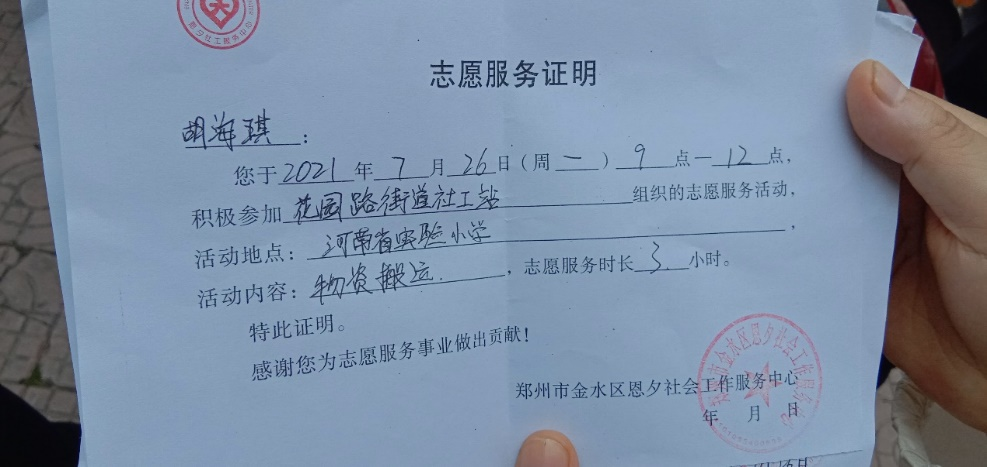 恩夕社工服务中心
志愿服务证明
胡海琪：
您于2021年7月26日（周二）9点—12点，
积极参加花园路街道社工站组织的志愿服务活动，
活动地点：河南省实验小学，
活动内容：物资搬运，志愿服务时长3小时。
特此证明。
感谢您为志愿服务事业做出贡献！
郑州市金水区恩夕社会工作服务中心
年 月 日
郑州市金水区恩夕社会工作服务中心